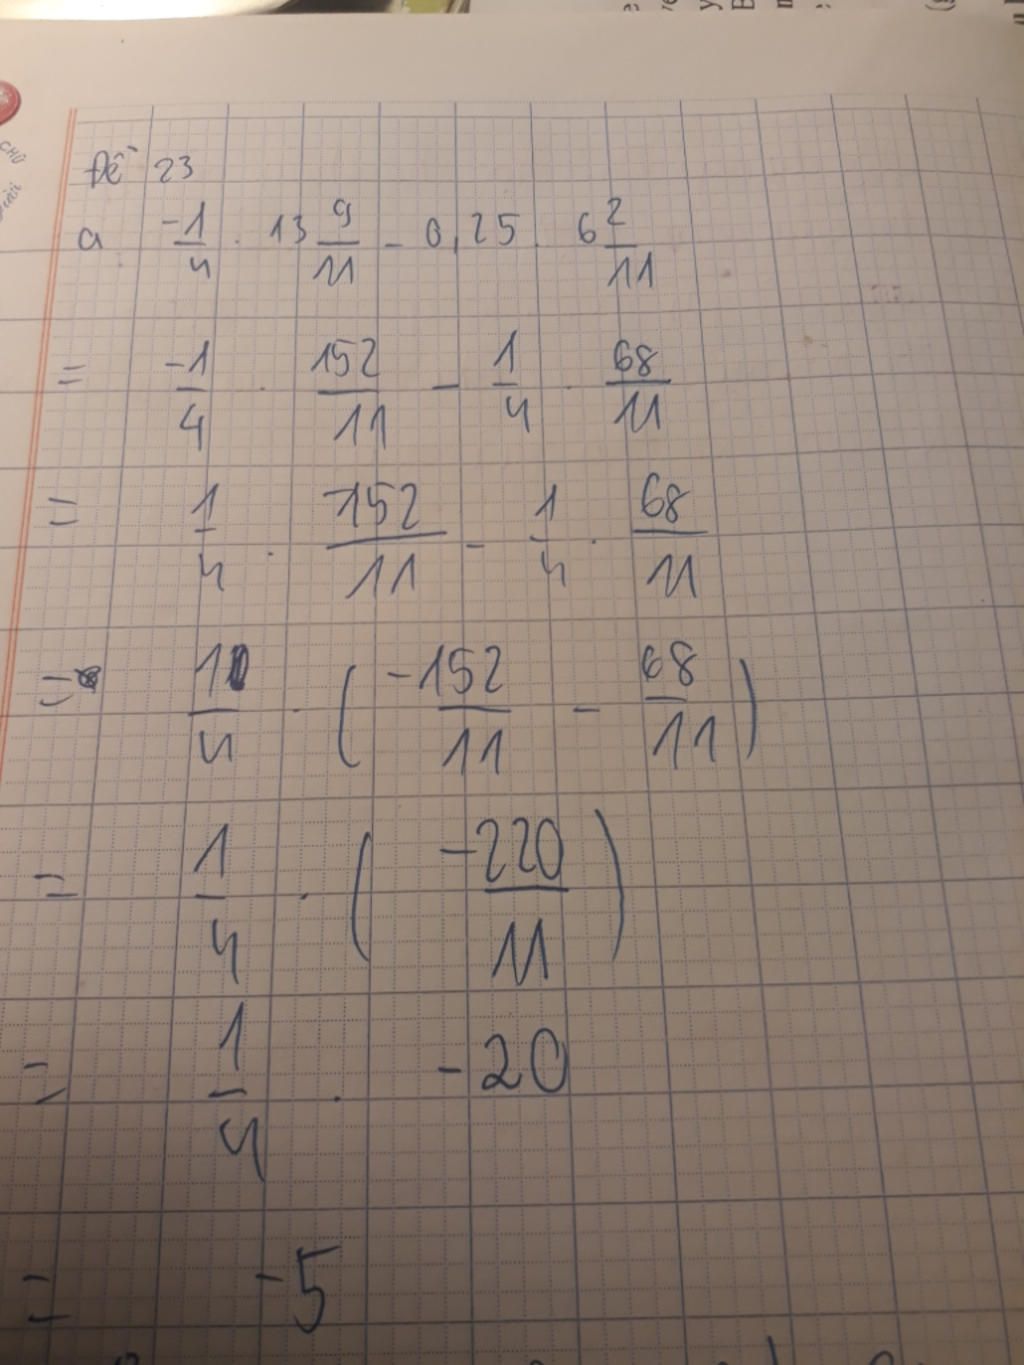 Đề 23
a -1/4 . 13 9/11 - 0,25 . 6 2/11
= -1/4 . 152/11 - 1/4 . 68/11
= 1/4 . -152/11 - 1/4 . 68/11
= 1/4 . ( -152/11 - 68/11 )
= 1/4 . ( -220/11 )
= 1/4 . -20
= -5